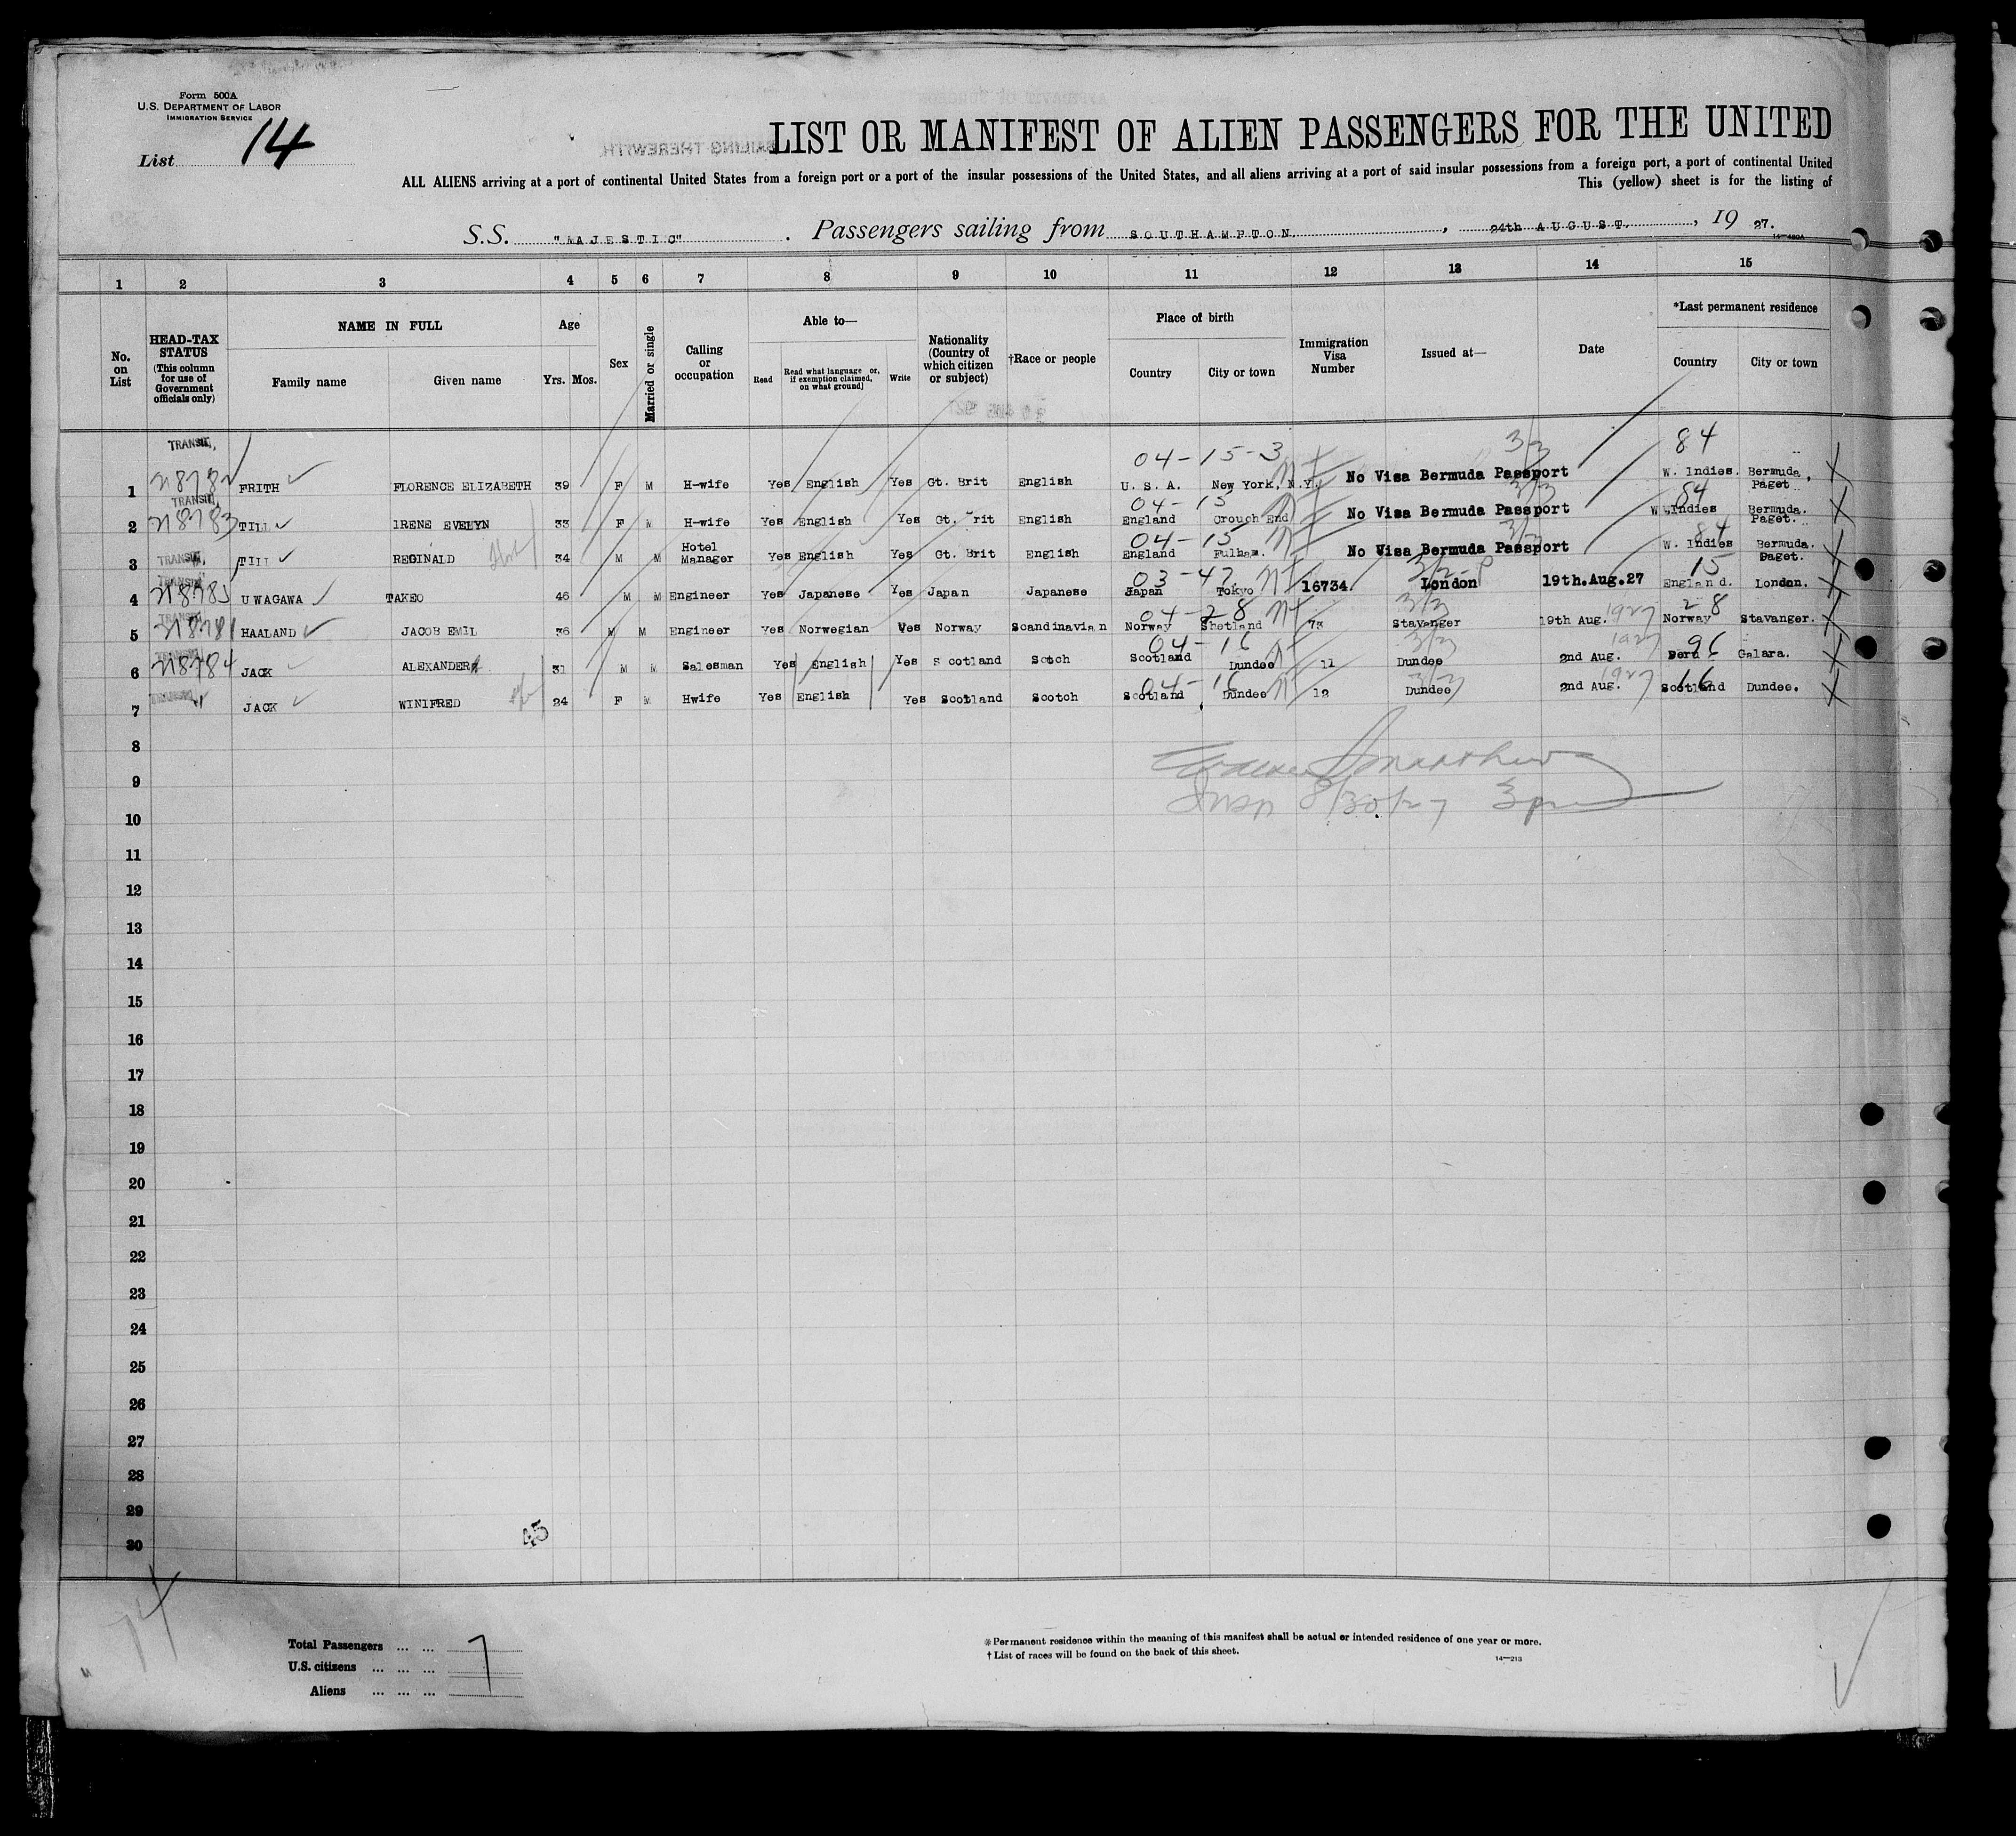 Form 500A
U.S. DEPARTMENT OF LABOR
IMMIGRATION SERVICE
List 14
LIST OR MANIFEST OF ALIEN PASSENGERS FOR THE UNITED
ALL ALIENS arriving at a port of continental United States from a foreign port or a port of the insular possessions of the United States, and all aliens arriving at a port of said insular possessions from a foreign port, a port of continental United
This (yellow) sheet is for the listing of
S.S. "MAJESTIC" . Passengers sailing from SOUTHAMPTON. , 24th AUGUST. , 19 27.
14—480A
1 2 3 4 5 6 7 8 9 10 11 12 13 14 15
No. on List
HEAD-TAX STATUS (This column for use of Government officials only)
NAME IN FULL
Family name
Given name
Age
Yrs. Mos.
Sex
Married or single
Calling or occupation
Able to—
Read
Read what language or, if exemption claimed, on what ground]
Write
Nationality (Country of which citizen or subject)
†Race or people
Place of birth
Country
City or town
Immigration Visa Number
Issued at—
Date
*Last permanent residence
Country
City or town
TRANSIT, 04-15-3 3/3 84
1 FRITH FLORENCE ELIZABETH 39 F M H-wife Yes English Yes Gt. Brit English U. S. A. New York, N.Y. No Visa Bermuda Passport W. Indies. Bermuda, Paget
TRANSIT, 04-15 3/3 84
2 218783 TILL IRENE EVELYN 33 F M H-wife Yes English Yes Gt. rit English England Crouch End No Visa Bermuda Passport W. Indies Bermuda. Paget.
TRANSIT, 04-15 3/3 84
3 TILL REGINALD 34 M M Hotel Manager Yes English Yes Gt. Brit English England Fulham. No Visa Bermuda Passport W. Indies Bermuda. Paget.
TRANSIT, 03-47 3/2-P 15
4 218785 UWAGAWA TAKEO 46 M M Engineer Yes Japanese Yes Japan Japanese Japan Tokyo 16734. London 19th.Aug.27 England. London.
TRANSIT 04-28 3/3 1927 28
5 218781 HAALAND JACOB EMIL 36 M M Engineer Yes Norwegian Yes Norway Scandinavian Norway Shetland 73 Stavanger 19th Aug. Norway Stavanger.
TRANSIT 04-16 3/3 1927 96
6 218784 JACK ALEXANDER 31 M M Salesman Yes English Yes Scotland Sotch Scotland Dundee 11 Dundee 2nd Aug. Peru Galara.
TRANSIT 04-16 3/3 1927 16
7 " JACK WINIFRED 24 F M Hwife Yes English Yes Scotland Scotch Scotland Dundee 12 Dundee 2nd Aug. Scotland Dundee.
8
Insp 8/30/27 3pm
9
10
11
12
13
14
15
16
17
18
19
20
21
22
23
24
25
26
27
28
29
30
45
Total Passengers ... ... 7
U.S. citizens ... ... ...
Aliens ... ... ...
*Permanent residence within the meaning of this manifest shall be actual or intended residence of one year or more.
†List of races will be found on the back of this sheet.
14—213